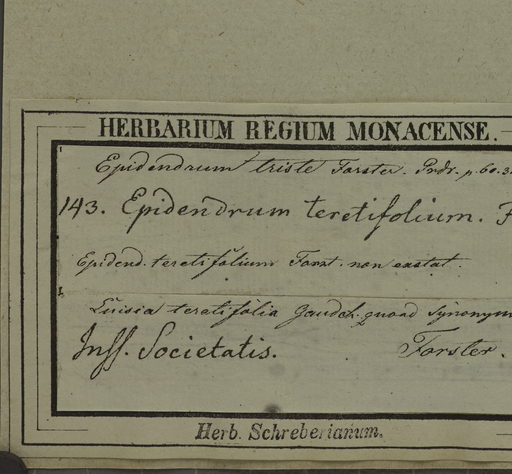 HERBARIUM REGIUM MONACENSE.
Epidendrum triste Forster. Prdr. p. 60.
143. Epidendrum teretifolium. F
Epidend. teretifolium Forst. non exstat.
Luisia teretifolia Gaudch. quoad Synonym
Inss. Societatis. Forster.
Herb. Schreberianum.